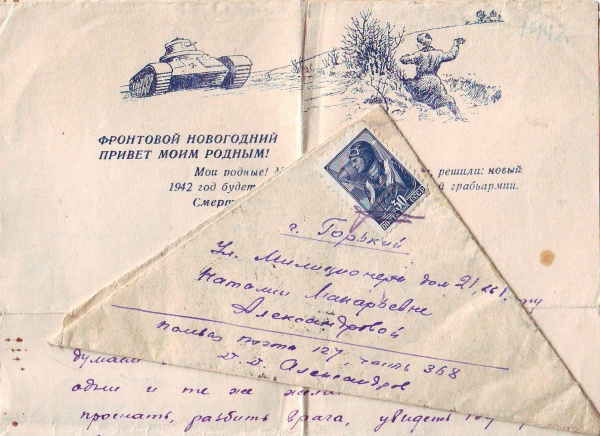 ФРОНТОВОЙ НОВОГОДНИЙ
ПРИВЕТ МОИМ РОДНЫМ!
Мои родные! решили: новый
1942 год будет грабьармии.
Смерт
30
ПОЧТА СССР
г. Горький
Ул. Милиционера дом 21,
Наталии Макарьевне
Александровой
Полевая почта 127, часть 368
Александров
думаем
одни и те же
прогнать, разбить врага, увидеть